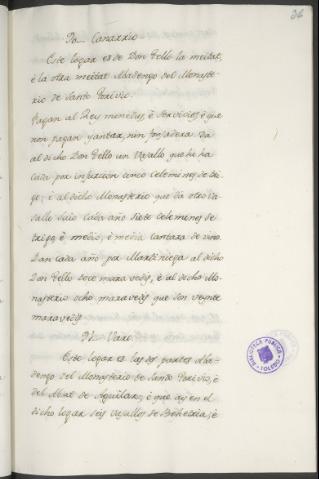 36
Po. Canarrio
Este logar es de Don Tello la meitat,
è la otra meitat Abadengo del Monaste-
rio de Santo Torivio.
Pagan al Rey monedas, è servicios, è que
non pagan yantar, nin fonsadera. Da
al dicho Don Tello un Vasallo que hi ha
cada por infurcion cinco celemines de tri-
go; è al dicho Monasterio que dà otro Va-
sallo suio cada año siete celemines de
trigo, è medio, è media cantara de vino.
Dan cada año por Martiniega al dicho
Don Tello doce maravedis, è al dicho Mo-
nasterio ocho maravedis que son veynte
maravedis.
Po. Varo
Este logar es las dos partes Aba-
dengo del Monasterio de Santo Torivio, è
del Abat de Aguilar; è que ay en el
dicho logar seis Vasallos de Behetria; è
BIBLIOTECA PUBLICA
TOLEDO